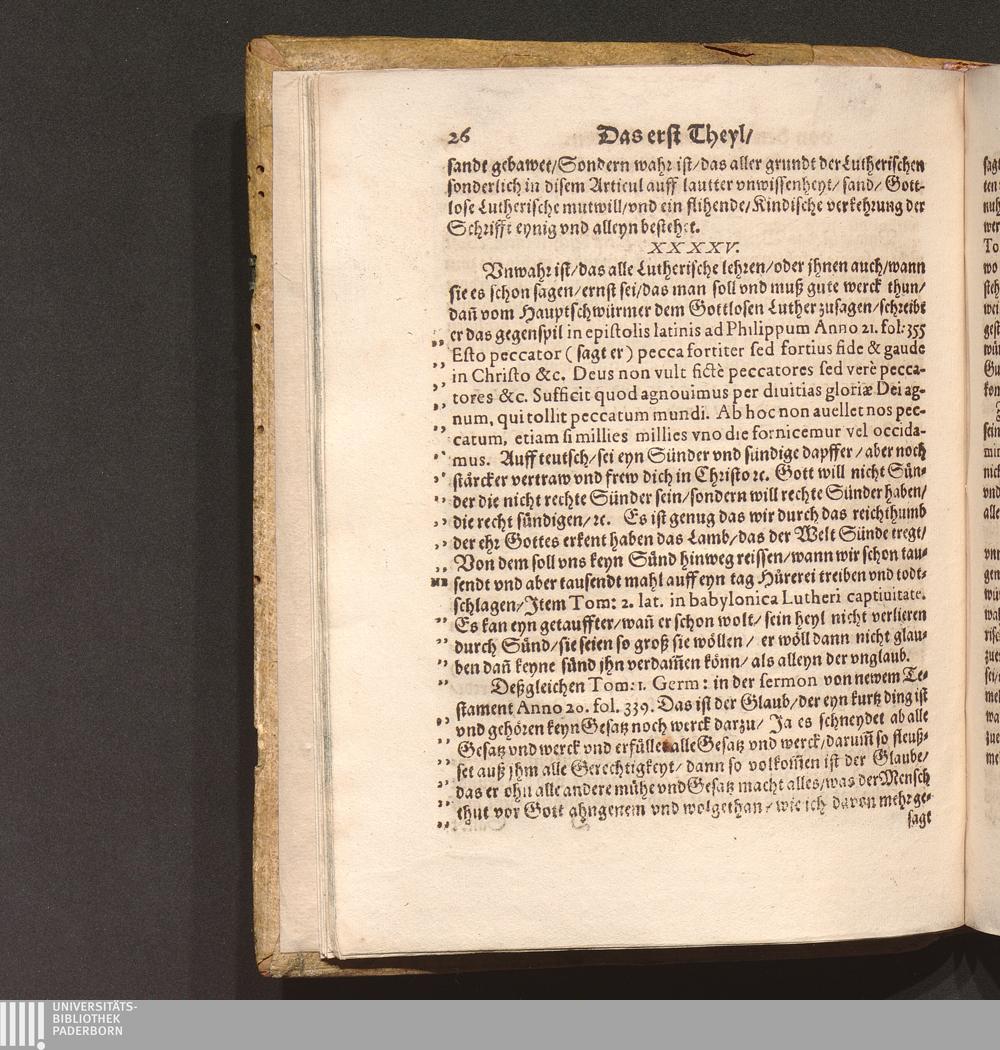 26 Das erst Theyl/
sandt gebawet/Sondern wahr ist/das aller grundt der Lutherischen
sonderlich in disem Articul auff lautter vnwissenheyt/ sand/ Gott-
lose Lutherische mutwill/vnd ein flihende/Kindische verkehrung der
Schrifft eynig vnd alleyn bestehet.
XXXXV.
Vnwahr ist/das alle Lutherische lehren/oder jhnen auch/wann
sie es schon sagen/ernst sei/das man soll vnd muß gute werck thun/
dañ vom Hauptschwürmer dem Gottlosen Luther zusagen/schreibt
er das gegenspil in epistolis latinis ad Philippum Anno 21. fol: 355
Esto peccator ( sagt er ) pecca fortiter sed fortius fide & gaude
in Christo &c. Deus non vult fictè peccatores sed verè pecca-
tores &c. Sufficit quod agnouimus per diuitias gloriæ Dei ag-
num, qui tollit peccatum mundi. Ab hoc non auellet nos pec-
catum, etiam si millies millies vno die fornicemur vel occida-
mus. Auff teutsch/sei eyn Sünder vnd sündige dapffer/aber noch
stärcker vertraw vnd frew dich in Christo ꝛc. Gott will nicht Sün-
der die nicht rechte Sünder sein/sondern will rechte Sünder haben/
die recht sündigen/ꝛc. Es ist genug das wir durch das reichthumb
der ehr Gottes erkent haben das Lamb/das der Welt Sünde tregt/
Von dem soll vns keyn Sünd hinweg reissen/wann wir schon tau-
sendt vnd aber tausendt mahl auff eyn tag Hůrerei treiben vnd todt-
schlagen/Item Tom: 2. lat. in babylonica Lutheri captiuitate.
Es kan eyn getauffter/wañ er schon wolt/sein heyl nicht verlieren
durch Sünd/sie seien so groß sie wöllen/ er wöll dann nicht glau-
ben dañ keyne sünd jhn verdam̃en könn/als alleyn der vnglaub.
Deßgleichen Tom: 1. Germ: in der sermon von newem Te-
stament Anno 20. fol. 339. Das ist der Glaub/der eyn kurtz ding ist
vnd gehören keyn Gesatz noch werck darzu/ Ja es schneydet ab alle
Gesatz vnd werck vnd erfüllet alle Gesatz vnd werck/darum̃ so fleuß-
set auß jhm alle Gerechtigkeyt/dann so volkom̃en ist der Glaube/
das er ohn alle andere mühe vnd Gesatz macht alles/was der Mensch
thut vor Gott ahngenem vnd wolgethan/wie ich davon mehr ge-
sagt
UNIVERSITÄTS-
BIBLIOTHEK
PADERBORN